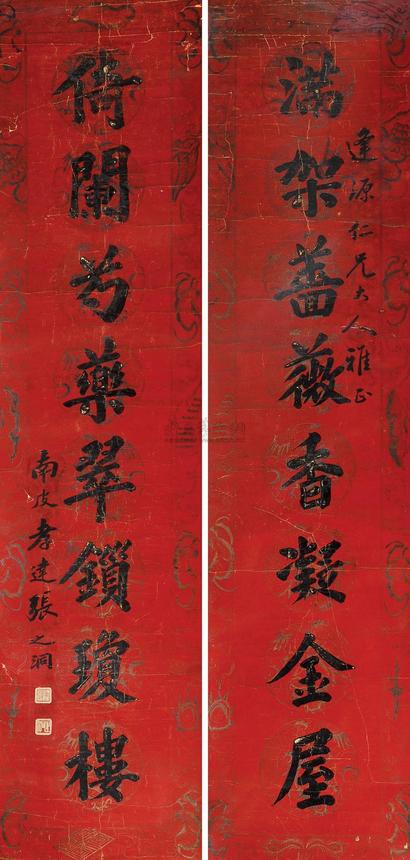 满架蔷薇香凝金屋
逢源仁兄大人雅正
倚闌芍藥翠鎖瓊樓
南皮孝達張之洞